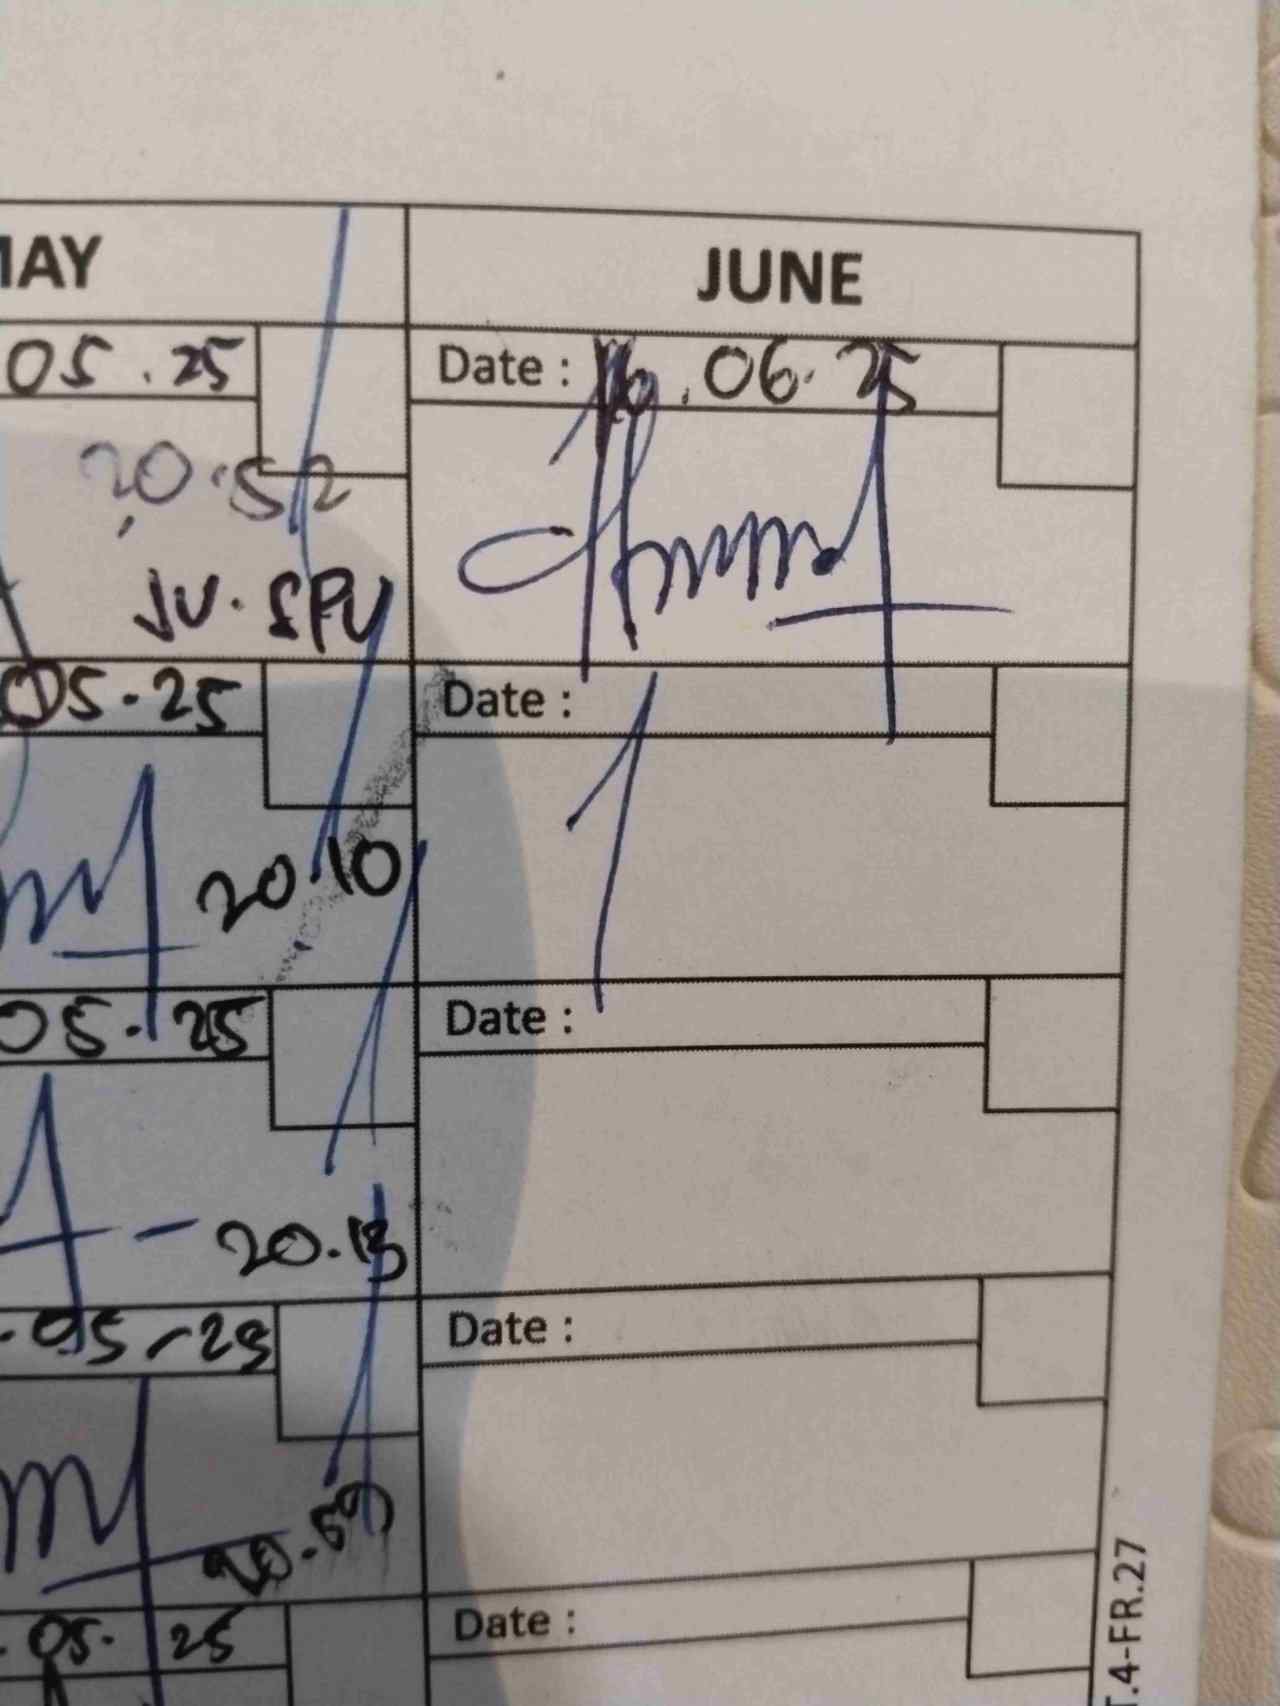 MAY JUNE
05.25 Date : 16.06.25
20.52
JU. SPV
05.25 Date :
20.10
05.25 Date :
- 20.13
.05-25 Date :
20.59
.05. 25 Date :
T.4-FR.27